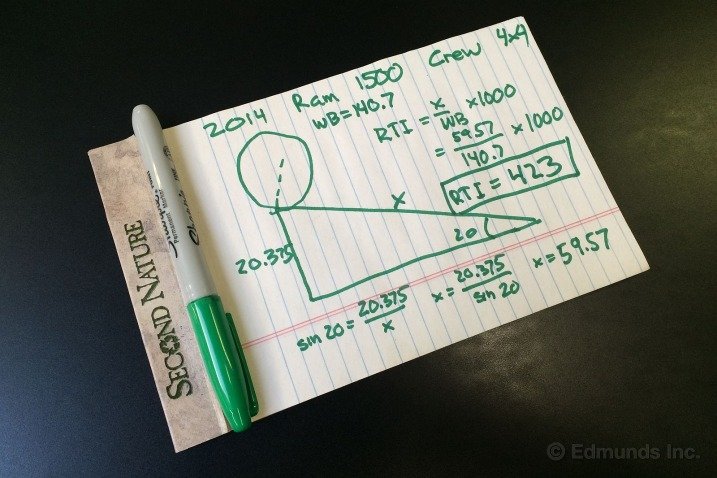 2014 Ram 1500 Crew 4x4
WB=140.7
RTI = x/WB x1000
= 59.57/140.7 x1000
RTI = 423
x
20
20.375
sin 20 = 20.375/x
x = 20.375/sin 20
x = 59.57
SECOND NATURE
Sharpie
© Edmunds Inc.